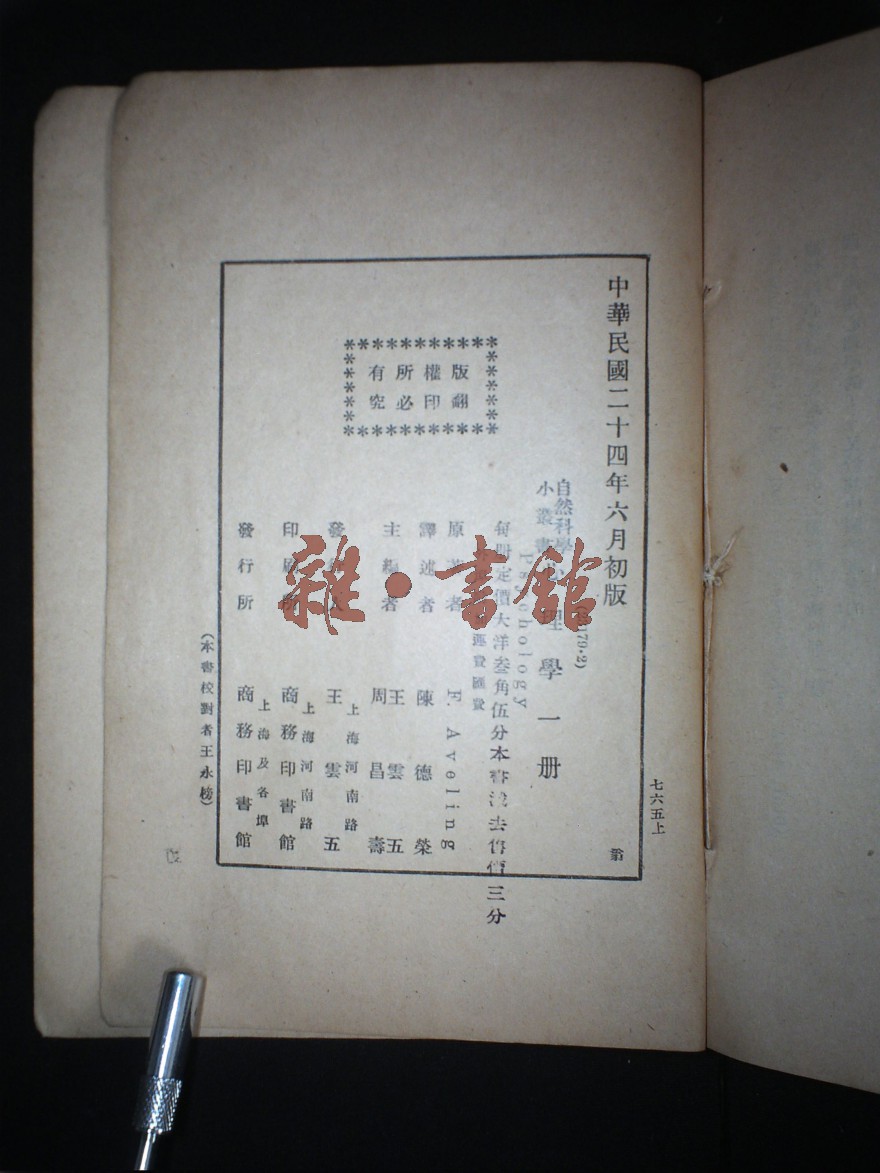 中華民國二十四年六月初版
七六五上
自然科學
小叢書
理學一册
Psychology
每册定價大洋叁角伍分
運費匯費
本書
去售價三分
版權所有
翻印必究
原著者 F. Aveling
譯述者 陳德榮
主編者 王雲五
周昌壽
王雲五
上海河南路
印刷所 商務印書館
上海河南路
發行所 商務印書館
上海及各埠
(本書校對者王永榜)
雜·書館